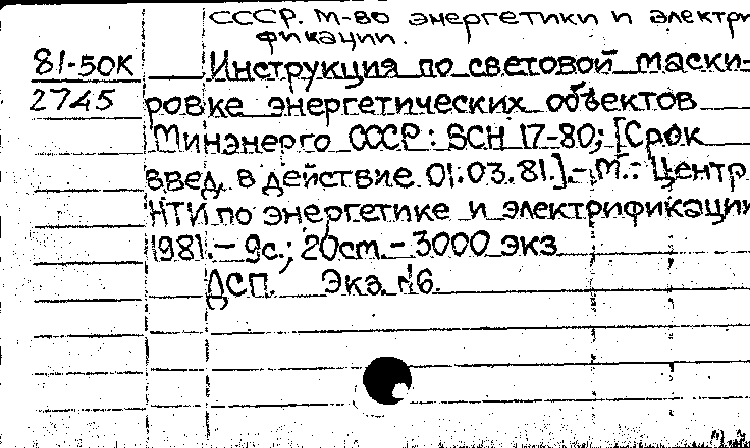 СССР. М-во энергетики и электри
фикации.
81-50К Инструкция по световой маски-
2745 ровке энергетических объектов
Минэнерго СССР: ВСН 17-80; [Срок
введ. в действие 01.03.81.].-М.: Центр
НТИ по энергетике и электрификации
1981.- 9с.; 20см.- 3000 экз
ДСП. Экз. №6.